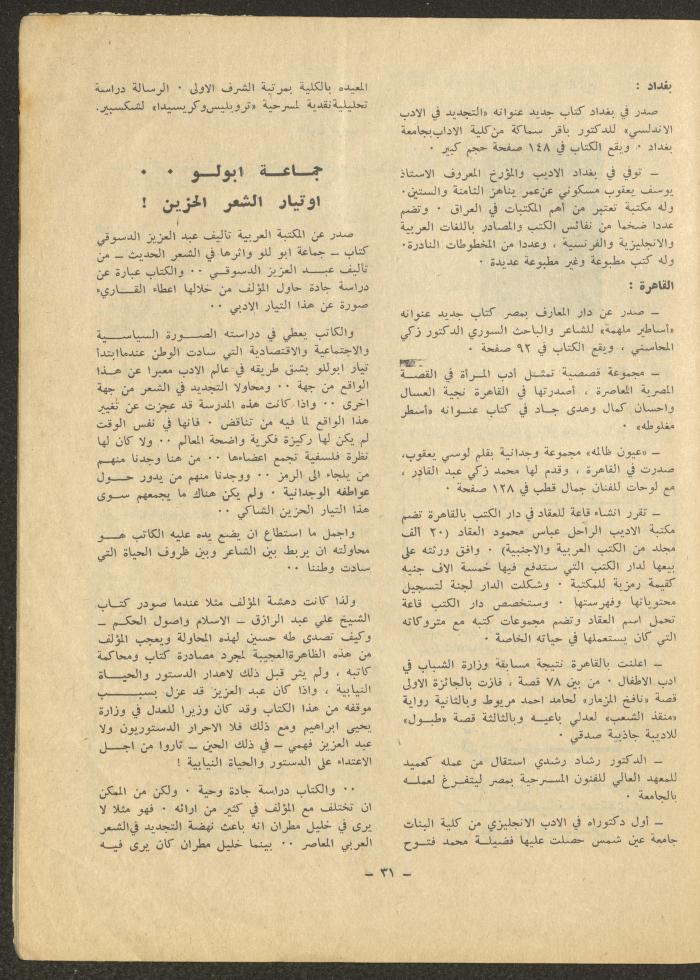 بغداد :
صدر في بغداد كتاب جديد عنوانه «التجديد في الادب
الاندلسي» للدكتور باقر سماكة من كلية الاداب بجامعة
بغداد ٠ ويقع الكتاب في ١٤٨ صفحة حجم كبير ٠
ـ توفي في بغداد الاديب والمؤرخ المعروف الاستاذ
يوسف يعقوب مسكوني عن عمر يناهز الثامنة والستين٠
وله مكتبة تعتبر من أهم المكتبات في العراق ٠ وتضم
عددا ضخما من نفائس الكتب والمصادر باللغات العربية
والانجليزية والفرنسية ، وعددا من المخطوطات النادرة٠
وله كتب مطبوعة وغير مطبوعة عديدة ٠
القاهرة :
ـ صدر عن دار المعارف بمصر كتاب جديد عنوانه
«أساطير ملهمة» للشاعر والباحث السوري الدكتور زكي
المحاسني ، ويقع الكتاب في ٩٢ صفحة ٠
ـ مجموعة قصصية تمثل أدب المرأة في القصة
المصرية المعاصرة ، أصدرتها في القاهرة نجية العسال
واحسان كمال وهدى جاد في كتاب عنوانه «أسطر
مغلوطه» ٠
ـ «عيون ظالمه» مجموعة وجدانية بقلم لوسي يعقوب،
صدرت في القاهرة ، وقدم لها محمد زكي عبد القادر ،
مع لوحات للفنان جمال قطب في ١٢٨ صفحة ٠
ـ تقرر انشاء قاعة للعقاد في دار الكتب بالقاهرة تضم
مكتبة الاديب الراحل عباس محمود العقاد (٢٠ الف
مجلد من الكتب العربية والاجنبية) ٠ وافق ورثته على
بيعها لدار الكتب التي ستدفع فيها خمسة الاف جنيه
كقيمة رمزية للمكتبة ٠ وشكلت الدار لجنة لتسجيل
محتوياتها وفهرستها ٠ وستخصص دار الكتب قاعة
تحمل اسم العقاد وتضم مجموعات كتبه مع متروكاته
التي كان يستعملها في حياته الخاصة ٠
ـ اعلنت بالقاهرة نتيجة مسابقة وزارة الشباب في
ادب الاطفال ٠ من بين ٧٨ قصة ، فازت بالجائزة الاولى
قصة «نافخ المزمار» لحامد احمد مربوط وبالثانية رواية
«منقذ الشعب» لعدلي باعيه وبالثالثة قصة «طبول»
للاديبة جاذبية صدقي ٠
ـ الدكتور رشاد رشدي استقال من عمله كعميد
للمعهد العالي للفنون المسرحية بمصر ليتفرغ لعمله
بالجامعة ٠
ـ أول دكتوراه في الادب الانجليزي من كلية البنات
جامعة عين شمس حصلت عليها فضيلة محمد فتوح
المعيده بالكلية بمرتبة الشرف الاولى ٠ الرسالة دراسة
تحليلية نقدية لمسرحية «ترويليس وكريسيدا» لشكسبير.
جماعة ابولو ٠ ٠
او تيار الشعر الحزين !
صدر عن المكتبة العربية تأليف عبد العزيز الدسوقي
كتاب ـ جماعة ابو للو واثرها في الشعر الحديث ـ من
تأليف عبد العزيز الدسوقي ٠٠ والكتاب عبارة عن
دراسة جادة حاول المؤلف من خلالها اعطاء القارىء
صورة عن هذا التيار الادبي ٠٠
والكاتب يعطي في دراسته الصورة السياسية
والاجتماعية والاقتصادية التي سادت الوطن عندما ابتدأ
تيار ابوللو يشق طريقه في عالم الادب معبرا عن هذا
الواقع من جهة ٠٠ ومحاولا التجديد في الشعر من جهة
اخرى ٠٠ واذا كانت هذه المدرسة قد عجزت عن تغيير
هذا الواقع لما فيه من تناقض ٠ فانها في نفس الوقت
لم يكن لها ركيزة فكرية واضحة المعالم ٠٠ ولا كان لها
نظرة فلسفية تجمع اعضاءها ٠٠ من هنا وجدنا منهم
من يلجاء الى الرمز ٠٠ ووجدنا منهم من يدور حول
عواطفه الوجدانية ٠ ولم يكن هناك ما يجمعهم سوى
هذا التيار الحزين الشاكي ٠٠
واجمل ما استطاع ان يضع يده عليه الكاتب هو
محاولته ان يربط بين الشاعر وبين ظروف الحياة التي
سادت وطننا ٠٠
ولذا كانت دهشة المؤلف مثلا عندما صودر كتاب
الشيخ علي عبد الرازق ـ الاسلام واصول الحكم ـ
وكيف تصدى طه حسين لهذه المحاولة ويعجب المؤلف
من هذه الظاهرة العجيبة لمجرد مصادرة كتاب ومحاكمة
كاتبه ، ولم يثر قبل ذلك لاهدار الدستور والحياة
النيابية ، واذا كان عبد العزيز قد عزل بسبب
موقفه من هذا الكتاب وقد كان وزيرا للعدل في وزارة
يحيى ابراهيم ومع ذلك فلا الاحرار الدستوريون ولا
عبد العزيز فهمي ـ في ذلك الحين ـ ثاروا من اجل
الاعتداء على الدستور والحياة النيابية !
٠٠ والكتاب دراسة جادة وحية ٠ ولكن من الممكن
ان تختلف مع المؤلف في كثير من ارائه ٠ فهو مثلا لا
يرى في خليل مطران انه باعث نهضة التجديد في الشعر
العربي المعاصر ٠٠ بينما خليل مطران كان يرى فيه
ـ ٣١ ـ